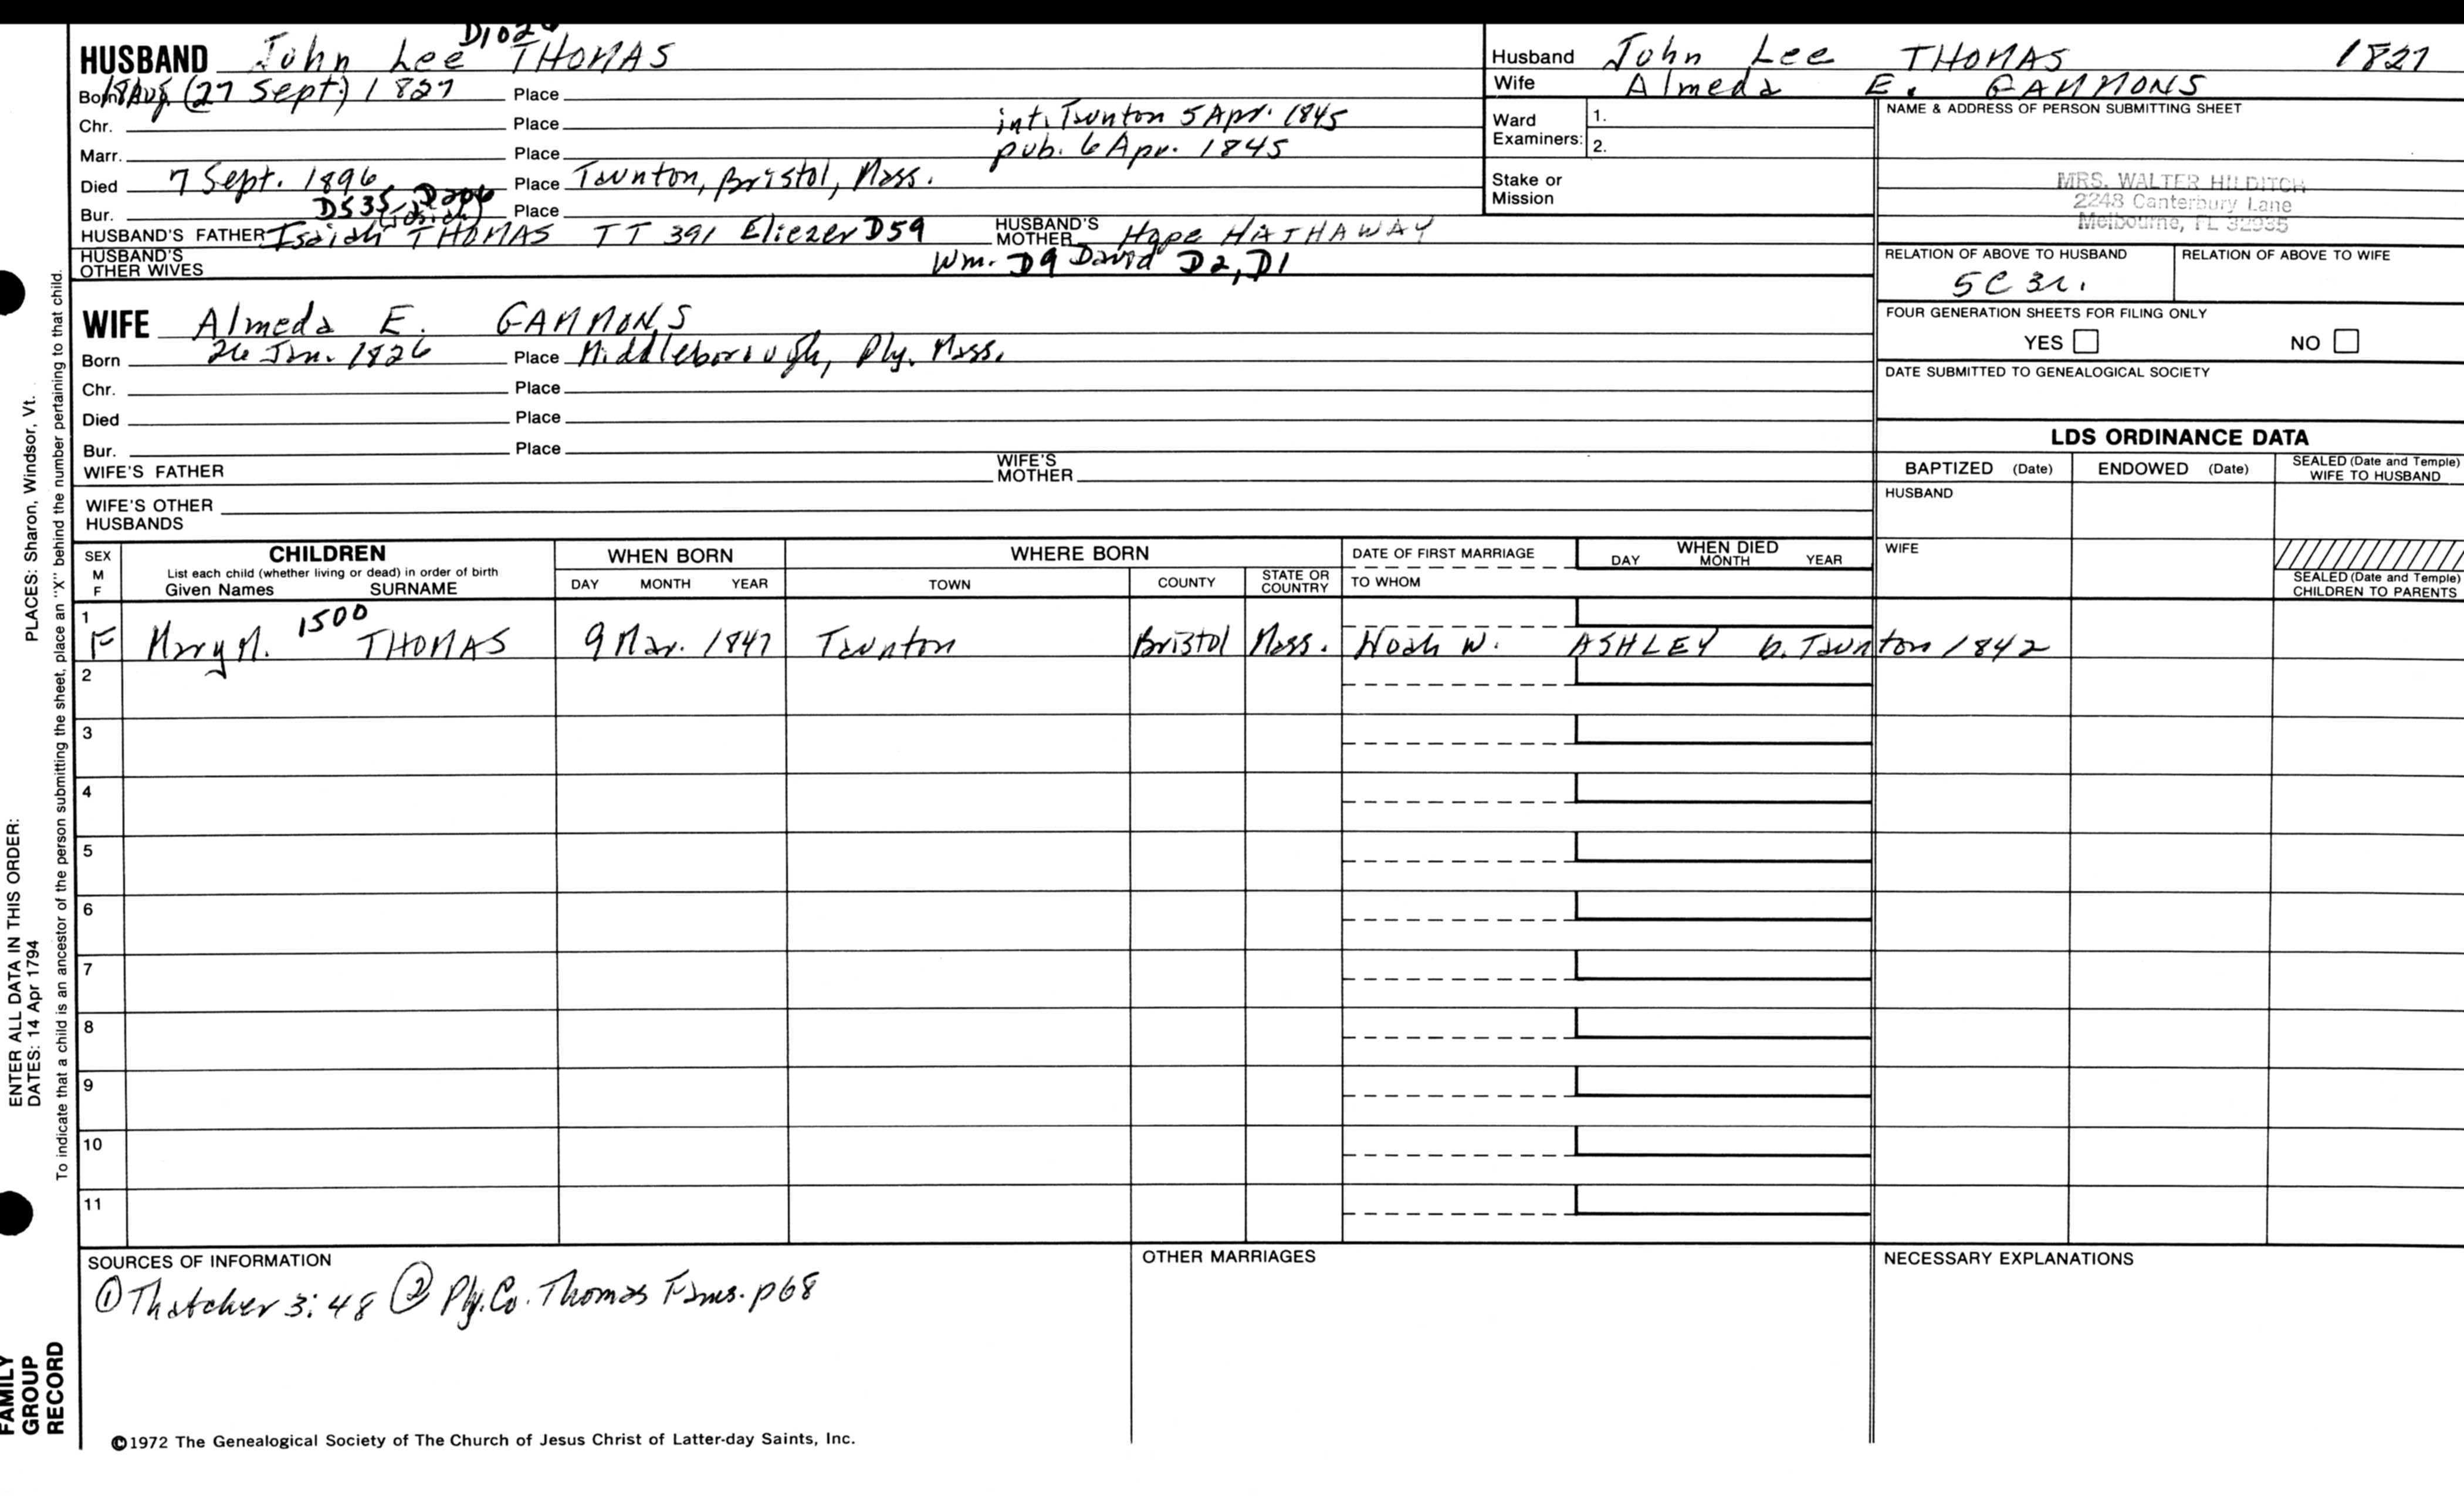 HUSBAND John Lee THOMAS
Born 18 Aug. (27 Sept.) 1827 Place
Chr. Place int. Taunton 5 Apr. 1845
Marr. Place pub. 6 Apr. 1845
Died 7 Sept. 1896 Place Taunton, Bristol, Mass.
Bur. D535, D206 Place
(Josiah)
HUSBAND'S FATHER Isaiah THOMAS TT 391 Eliezer D59 HUSBAND'S MOTHER Hope HATHAWAY
HUSBAND'S OTHER WIVES Wm. D9 David D2, D1
WIFE Almeda E. GAMMONS
Born 26 Jan. 1826 Place Middleborough, Ply. Mass.
Chr. Place
Died Place
Bur. Place
WIFE'S FATHER WIFE'S MOTHER
WIFE'S OTHER HUSBANDS
Husband John Lee THOMAS 1827
Wife Almeda E. GAMMONS
Ward Examiners: 1.
2.
Stake or Mission
NAME & ADDRESS OF PERSON SUBMITTING SHEET
MRS. WALTER HILDITCH
2248 Canterbury Lane
Melbourne, FL 32935
RELATION OF ABOVE TO HUSBAND RELATION OF ABOVE TO WIFE
5C 3r.
FOUR GENERATION SHEETS FOR FILING ONLY
YES NO
DATE SUBMITTED TO GENEALOGICAL SOCIETY
LDS ORDINANCE DATA
BAPTIZED (Date) ENDOWED (Date) SEALED (Date and Temple) WIFE TO HUSBAND
HUSBAND
WIFE
SEALED (Date and Temple) CHILDREN TO PARENTS
SEX M F
CHILDREN
List each child (whether living or dead) in order of birth
Given Names SURNAME
WHEN BORN
DAY MONTH YEAR
WHERE BORN
TOWN COUNTY STATE OR COUNTRY
DATE OF FIRST MARRIAGE
TO WHOM
WHEN DIED
DAY MONTH YEAR
1 1500
F Mary M. THOMAS 9 Mar. 1847 Taunton Bristol Mass. Noah W. ASHLEY b. Taunton 1842
2
3
4
5
6
7
8
9
10
11
SOURCES OF INFORMATION
① Thatcher 3:48 ② Ply. Co. Thomas Fams. p68
OTHER MARRIAGES
NECESSARY EXPLANATIONS
©1972 The Genealogical Society of The Church of Jesus Christ of Latter-day Saints, Inc.
ENTER ALL DATA IN THIS ORDER:
DATES: 14 Apr 1794 PLACES: Sharon, Windsor, Vt.
To indicate that a child is an ancestor of the person submitting the sheet, place an "X" behind the number pertaining to that child.
FAMILY
GROUP
RECORD